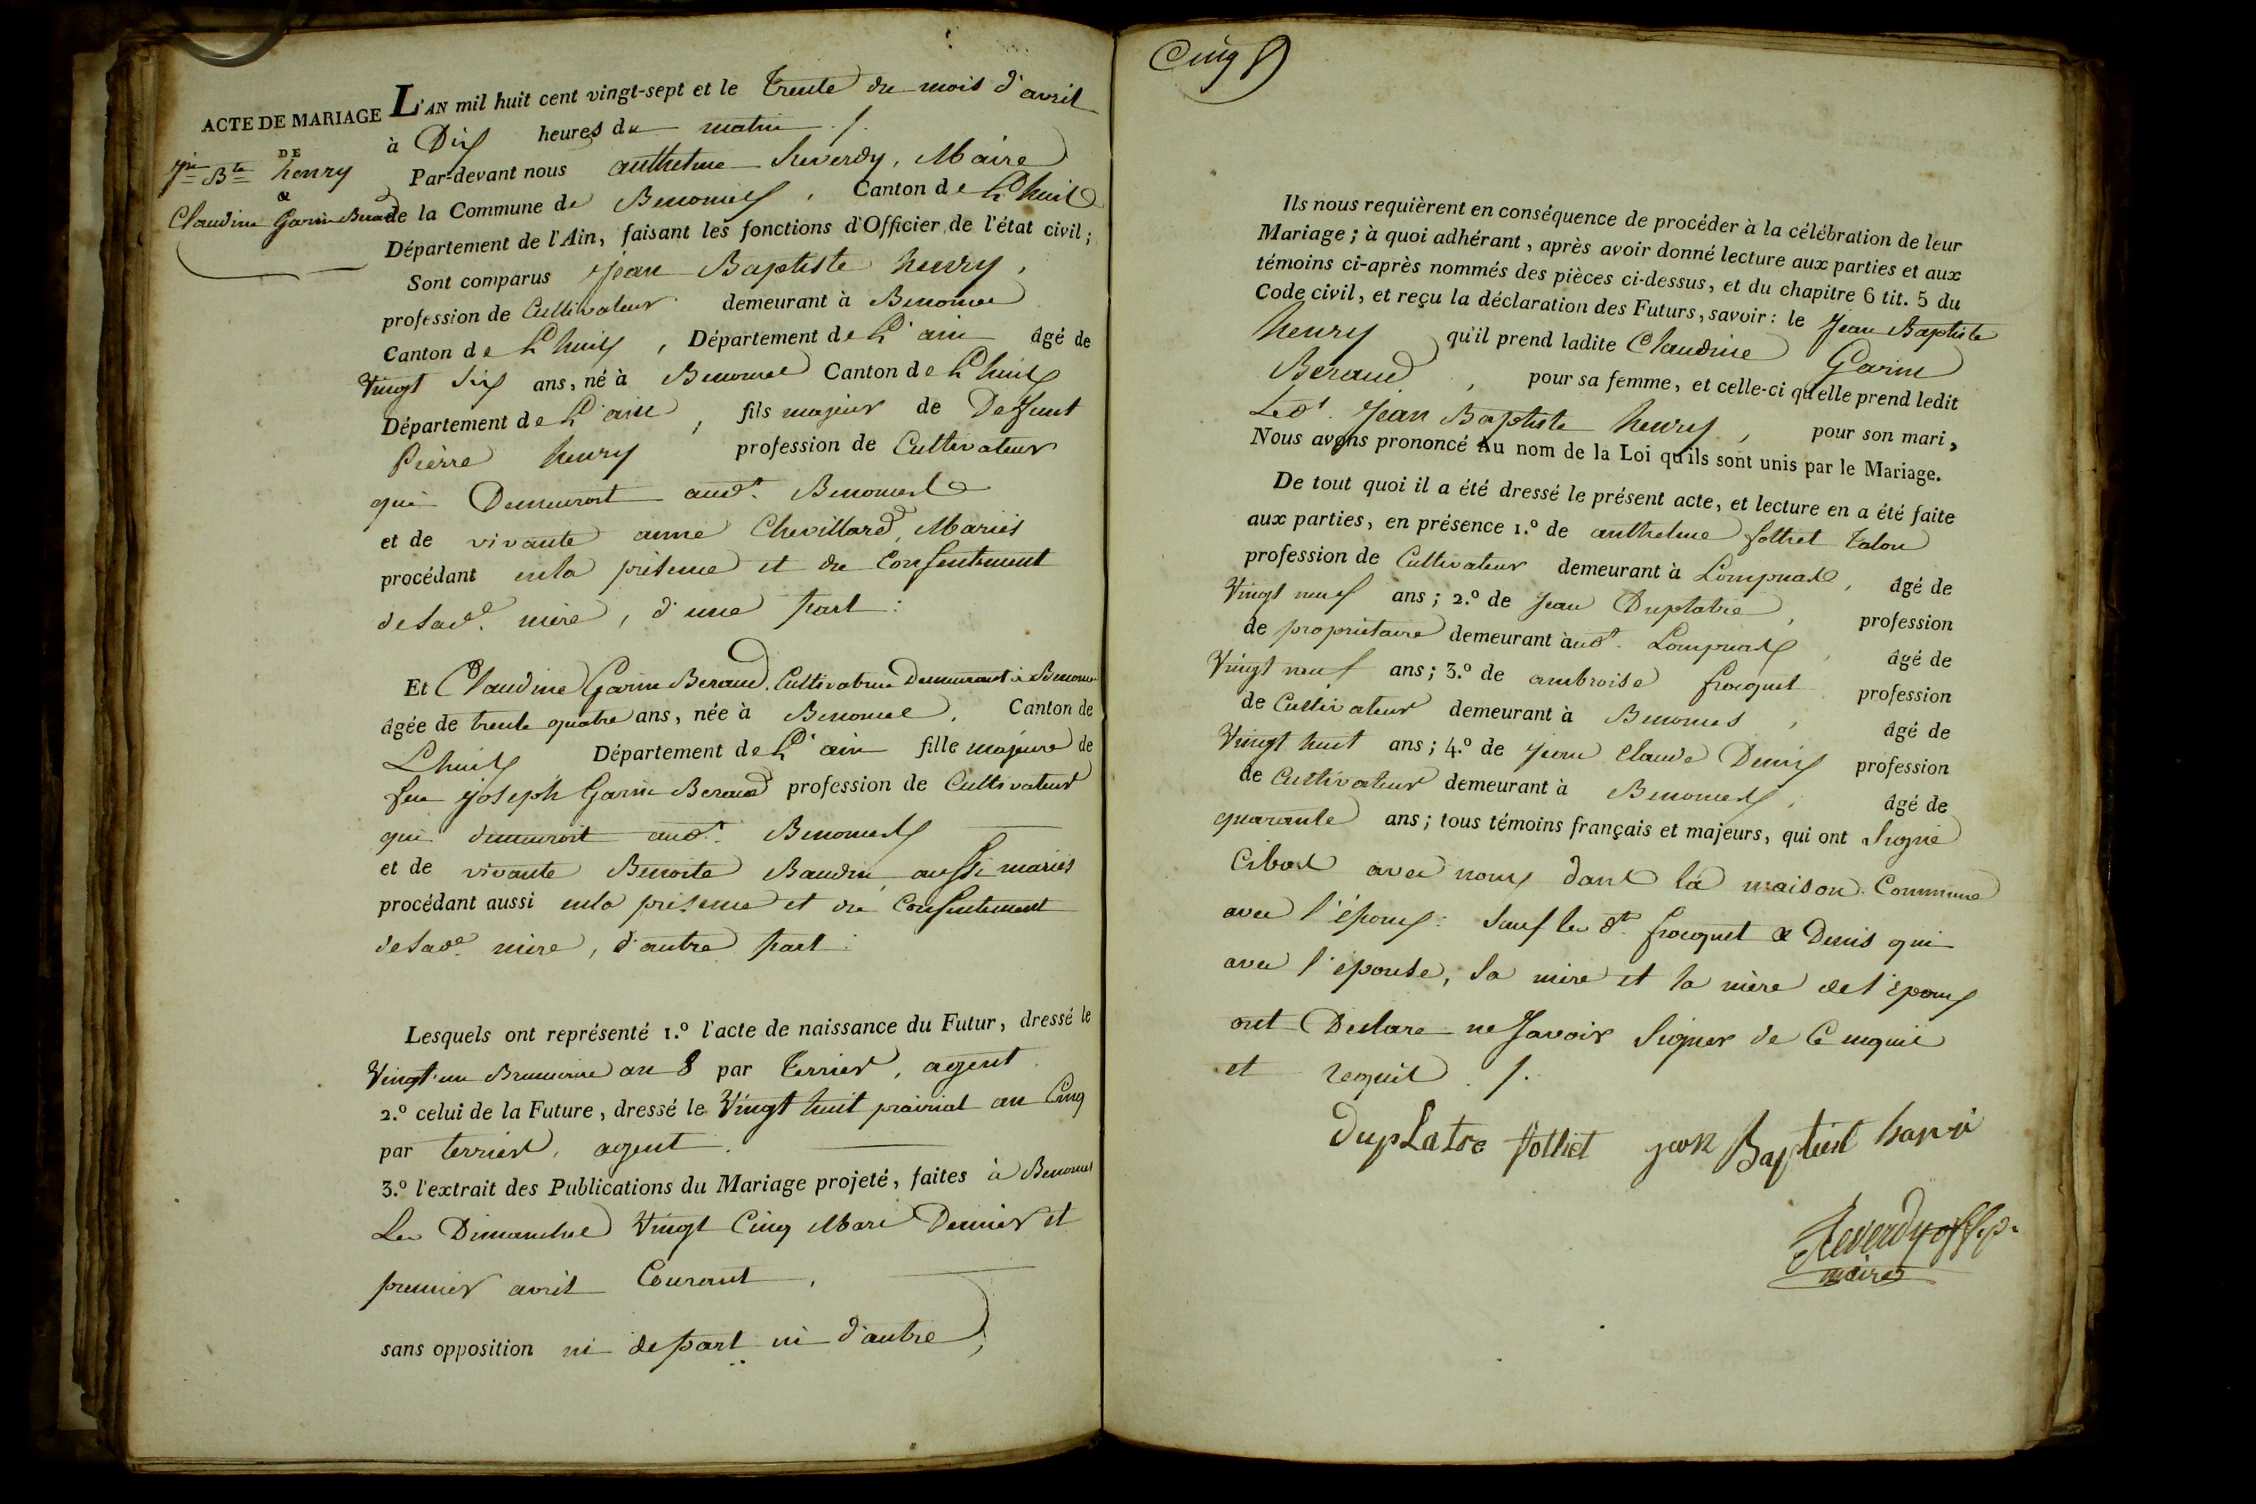 ACTE DE MARIAGE
DE
Jn Bte henry
&
Claudine Garin Beraud
L'AN mil huit cent vingt-sept et le Trente du mois d'avril
à Dix heures du matin ./.
Par-devant nous anthelme Reverdy, Maire
de la Commune de Benonces, Canton de Lhuis
Département de l'Ain, faisant les fonctions d'Officier de l'état civil;
Sont comparus Jean Baptiste henry,
profession de Cultivateur demeurant à Benonce
Canton de Lhuis, Département de L'ain âgé de
Vingt Six ans, né à Benonce Canton de Lhuis
Département de L'ain, fils majeur de Defunt
Pierre henry profession de Cultivateur
qui Demeuroit aud.t Benonces
et de vivante anne Chevillard, Mariés
procédant en la présence et du Consentement
de sad.e mère, d'une part:
Et Claudine Garin Beraud, Cultivatrice Demeurant à Benonce
âgée de trente quatre ans, née à Benonce, Canton de
Lhuis Département de L'ain fille majeure de
feu joseph Garin Beraud profession de Cultivateur
qui demeuroit aud.t Benonces
et de vivante Benoite Baudin, aussi mariés
procédant aussi en la présence et du Consentement
de sad.e mère, d'autre part:
Lesquels ont représenté 1.º l'acte de naissance du Futur, dressé le
Vingt un Brumaire an 8 par Terrier, agent.
2.º celui de la Future, dressé le Vingt huit prairial an Cinq
par terrier, agent.
3.º l'extrait des Publications du Mariage projeté, faites à Benonces
Les Dimanches Vingt Cinq Mars Dernier et
premier avril Courant,
sans opposition ni de part ni d'autre;
Cinq
Ils nous requièrent en conséquence de procéder à la célébration de leur
Mariage; à quoi adhérant, après avoir donné lecture aux parties et aux
témoins ci-après nommés des pièces ci-dessus, et du chapitre 6 tit. 5 du
Code civil, et reçu la déclaration des Futurs, savoir: le Jean Baptiste
henry qu'il prend ladite Claudine Garin
Beraud, pour sa femme, et celle-ci qu'elle prend ledit
Led.t Jean Baptiste henry, pour son mari,
Nous avons prononcé Au nom de la Loi qu'ils sont unis par le Mariage.
De tout quoi il a été dressé le présent acte, et lecture en a été faite
aux parties, en présence 1.º de anthelme folliet talon
profession de Cultivateur demeurant à Lompnas, âgé de
Vingt neuf ans; 2.º de Jean Duplatre, profession
de propriétaire demeurant à aud.t Lompnas, âgé de
Vingt neuf ans; 3.º de ambroise froquet profession
de Cultivateur demeurant à Benonces, âgé de
Vingt huit ans; 4.º de Jean Claude Denis profession
de Cultivateur demeurant à Benonces, âgé de
quarante ans; tous témoins français et majeurs, qui ont Signé
Cibas avec nous dans la maison Commune
avec l'époux: Sauf les d.ts froquet & Denis qui
avec l'épouse, Sa mère et la mère de l'époux
ont Déclaré ne Savoir Signer de Ce enquis
et requis ./.
DupLatre follict jean Baptist hanri
Reverdy
maire